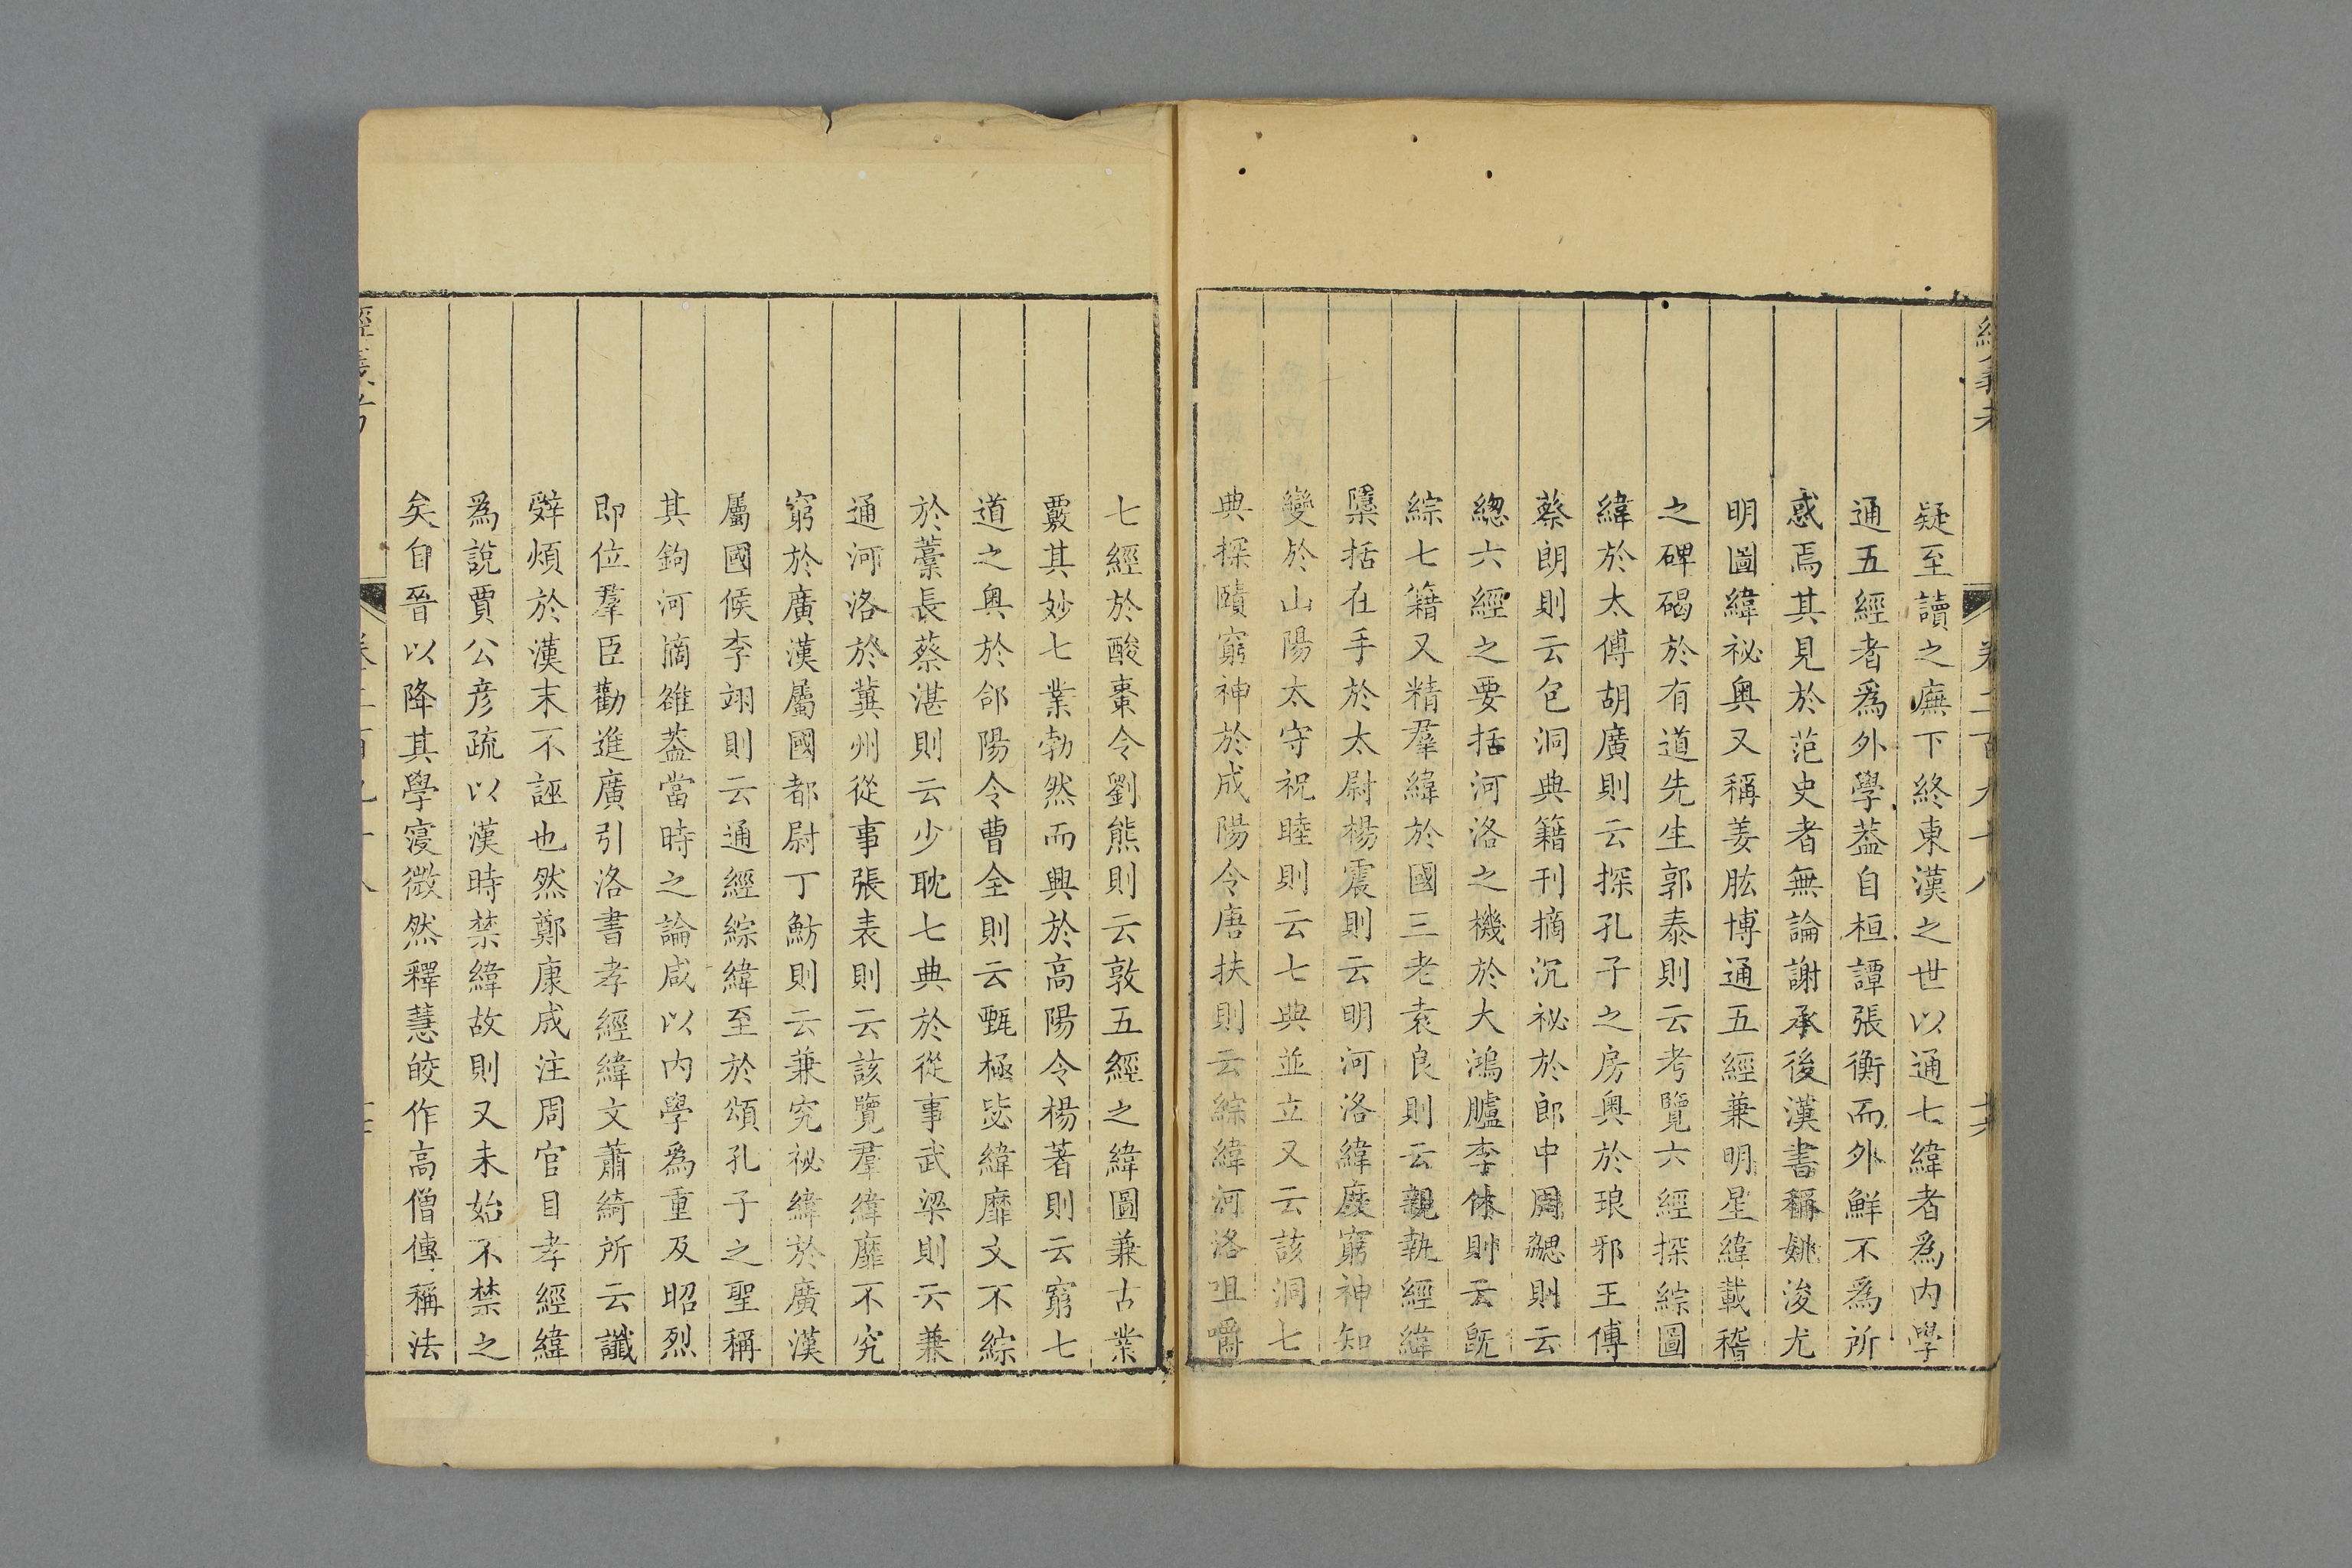 經義考
卷二百九十八
疑至讀之廡下終東漢之世以通七緯者爲内學
通五經者爲外學葢自桓譚張衡而外鮮不爲所
惑焉其見於范史者無論謝承後漢書稱姚浚尤
明圖緯祕奥又稱姜肱博通五經兼明星緯載稽
之碑碣於有道先生郭泰則云考覽六經探綜圖
緯於太傅胡廣則云探孔子之房奥於琅邪王傅
蔡朗則云包洞典籍刊摘沉祕於郎中周勰則云
緫六經之要括河洛之機於大鴻臚李休則云旣
綜七籍又精羣緯於國三老袁良則云親執經緯
櫽括在手於太尉楊震則云明河洛緯度窮神知
變於山陽太守祝睦則云七典並立又云該洞七
典探賾窮神於成陽令唐扶則云綜緯河洛咀嚼
七經於酸棗令劉熊則云敦五經之緯圖兼古業
覈其妙七業勃然而興於高陽令楊著則云窮七
道之奥於郃陽令曹全則云甄極毖緯靡文不綜
於藁長蔡湛則云少耽七典於從事武梁則云兼
通河洛於冀州從事張表則云該覽羣緯靡不究
窮於廣漢屬國都尉丁魴則云兼究祕緯於廣漢
屬國候李翊則云通經綜緯至於頌孔子之聖稱
其鉤河摘雒葢當時之論咸以内學爲重及昭烈
即位羣臣勸進廣引洛書孝經緯文蕭綺所云讖
辤煩於漢末不誣也然鄭康成注周官目孝經緯
爲説賈公彦疏以漢時禁緯故則又未始不禁之
矣自晉以降其學寖微然釋慧皎作高僧傳稱法
經義考